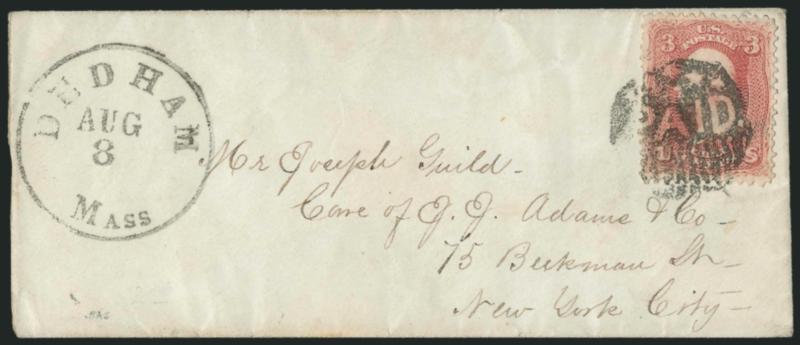 DEDHAM
AUG
8
MASS
3 U.S. POSTAGE 3
PAID
Mr Joseph Guild -
Care of J. J. Adams & Co -
75 Beekman St -
New York City -